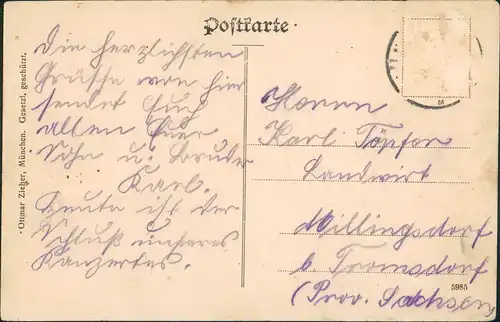 Postkarte
Die herzlichsten
Grüße von hier
sendet Euch
allen Euer
Sohn u. Bruder
Karl.
Heute ist der
Schluß unseres
Konzertes.
Herrn
Karl Töpfer
Landwirt
Millingsdorf
b. Tromsdorf
(Prov. Sachsen
5985
M
Ottmar Zieher, München. Gesetzl. geschützt.